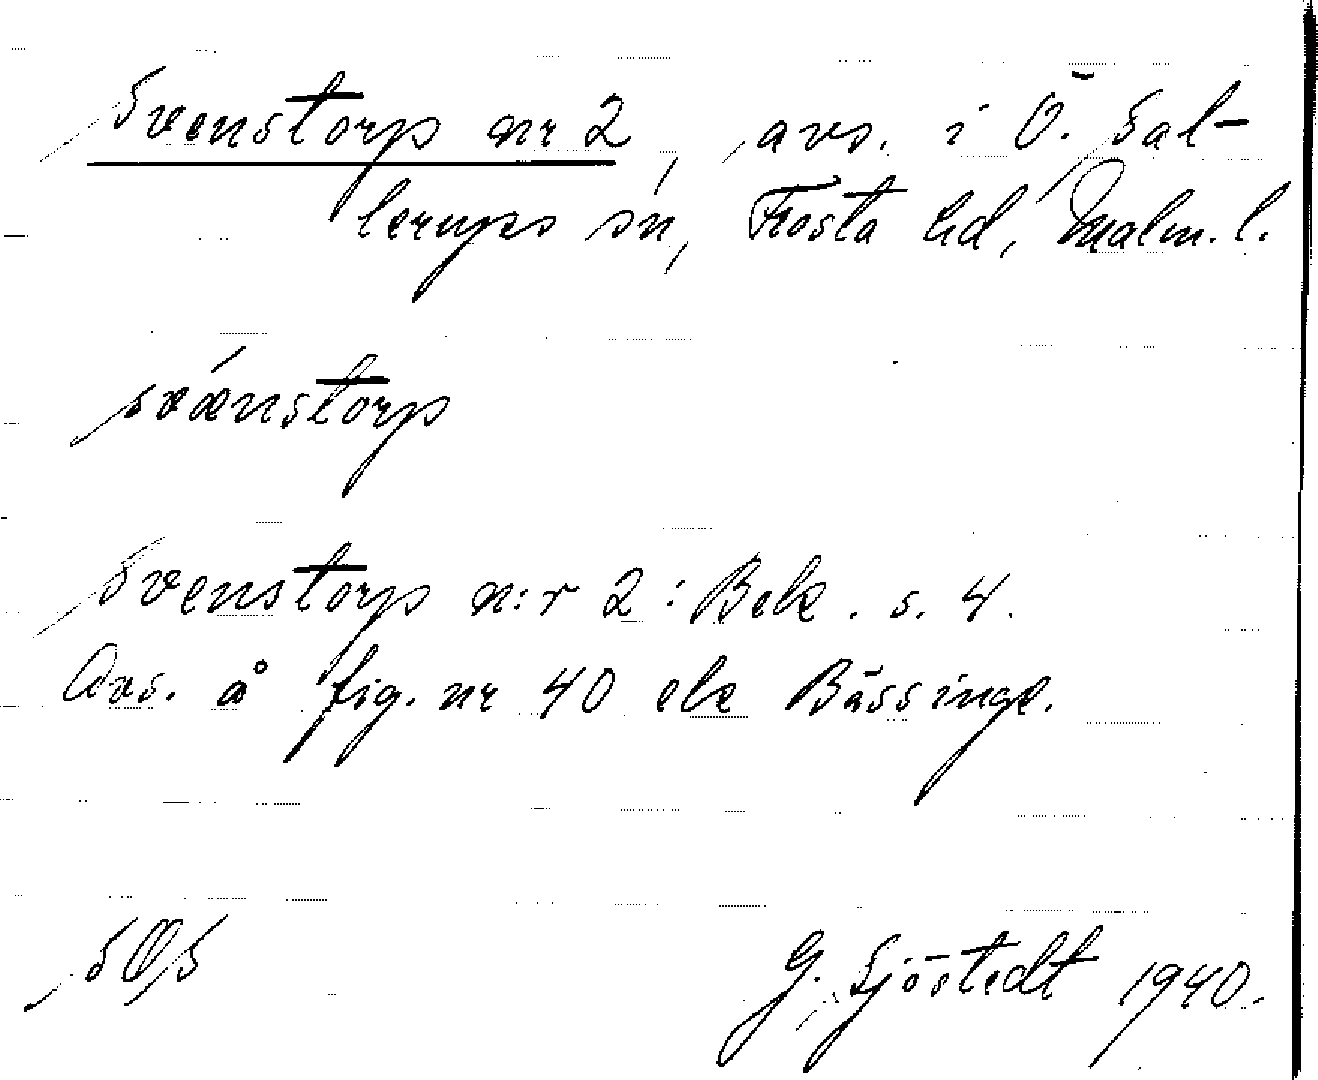 Svenstorp nr 2, avs. i Ö. Sal-
lerups sn, Frosta hd, Malm. l.
svǽnstorp
Svenstorp n:r 2 : Bek. s. 4.
Avs. å fig. nr 40 ek Bässinge.
SOS
G. Sjöstedt 1940.